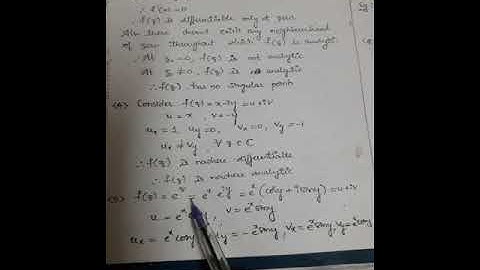 f'(0)=0
∴ f(z) is differentiable only at zero
Also there doesnot exist any neighbourhood
of zero throughout which f(z) is analytic
∴ At z=0, f(z) is not analytic
At z≠0, f(z) is analytic
∴ f(z) has no singular point
Consider f(z) = x-iy = u+iv
u=x, v=-y
ux = 1, uy=0, vx=0, vy=-1
ux ≠ vy ∀ z ∈ C
∴ f(z) is nowhere differentiable
∴ f(z) is nowhere analytic
f(z) = e^z = e^x e^iy = e^x (cosy + i siny) = u+iv
u = e^x , v = e^x siny
ux = e^x cosy, uy = -e^x siny, vx = e^x siny, vy = e^x cosy